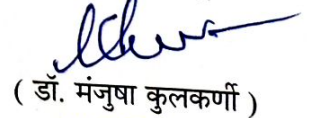 ( डॉ. मंजुषा कुलकर्णी )